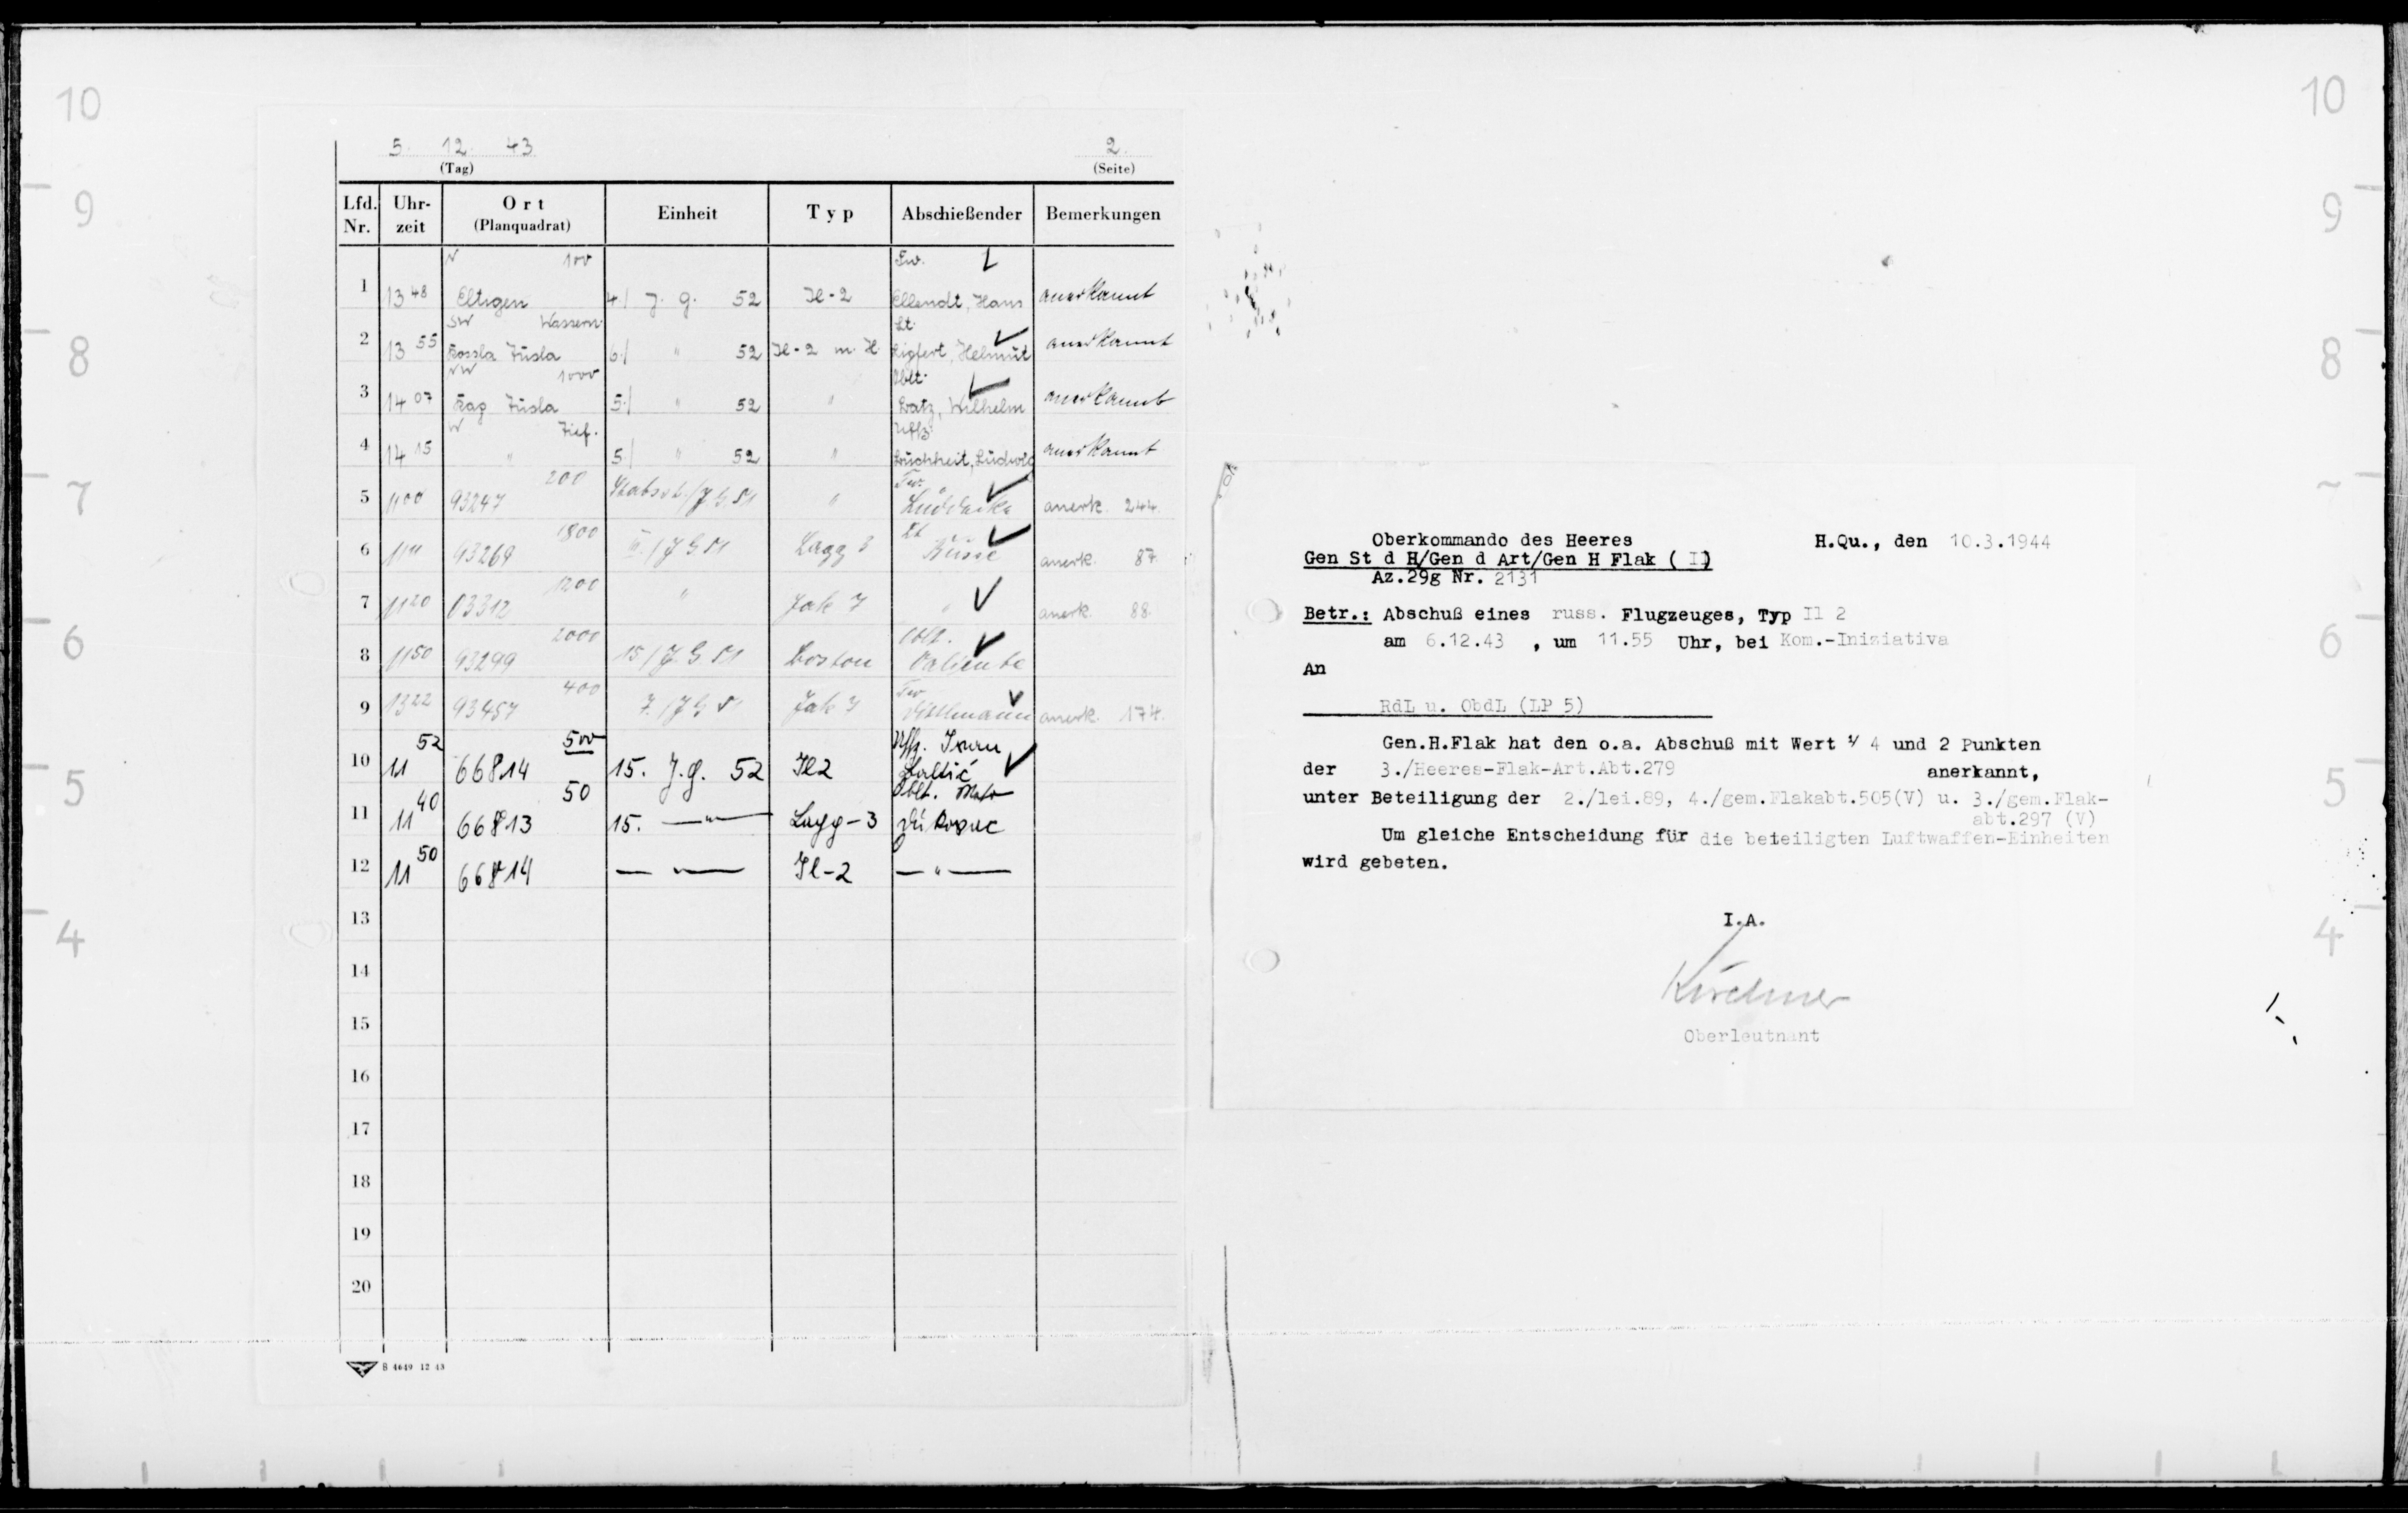 5. 12. 43
(Tag)
2.
(Seite)
Lfd. Nr. Uhrzeit Ort (Planquadrat) Einheit Typ Abschießender Bemerkungen
N 100 Fw.
1 13 48 Eltigen 4./ J. G. 52 Il-2 Ellendt, Hans anerkannt
SW Wassern. Lt.
2 13 55 Kossa Tusla 6./ " 52 Il-2 m. H. Lipfert, Helmut anerkannt
NW 1000 Oblt.
3 14 07 Tusla 5./ " 52 " Batz, Wilhelm anerkannt
W Tief. Uffz.
4 14 15 " 5./ " 52 " Buchheit, Ludwig anerkannt
200 Fw.
5 11 00 93247 /JG 51 " Lüddecke anerk. 244.
1800 Lt
6 11 11 93269 III./JG 51 Lagg 3 Büsse anerk. 87.
1200
7 11 20 03312 " Jak 7 " anerk. 88.
2000
8 11 50 93299 15/J.G. 51 Boston Valiente
400 Fw
9 13 22 93457 7./JG 51 anerk. 174.
500 Uffz.
10 11 52 66814 15. J.G. 52 Il2 Baltić
50 Oblt. Mato
11 11 40 66813 15. — " — Lagg-3 Dukovac
12 11 50 66814 — " — Il-2 — " —
13
14
15
16
17
18
19
20
B 4649 12 43
Oberkommando des Heeres H.Qu., den 10.3.1944
Gen St d H/Gen d Art/Gen H Flak ( I)
Az.29g Nr. 2131
Betr.: Abschuß eines russ. Flugzeuges, Typ Il 2
am 6.12.43 , um 11.55 Uhr, bei Kom.-Iniziativa
An
RdL u. ObdL (LP 5)
Gen.H.Flak hat den o.a. Abschuß mit Wert 1/ 4 und 2 Punkten
der 3./Heeres-Flak-Art.Abt.279 anerkannt,
unter Beteiligung der 2./lei.89, 4./gem.Flakabt.505(V) u. 3./gem.Flak-
abt.297 (V)
Um gleiche Entscheidung für die beteiligten Luftwaffen-Einheiten
wird gebeten.
I.A.
Kirchner
Oberleutnant
10
9
8
7
6
5
4
10
9
8
6
5
4